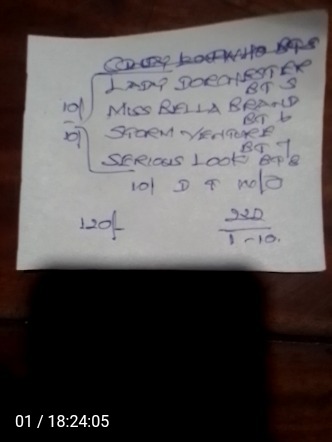 LADY DORCHESTER
BT 3
10/ MISS BELLA BRAND
BT 6
10/ STORM VENTURE
BT 7
SERIOUS LOOK BT 8
10/ D T
120/- 220
1-10.
01 / 18:24:05